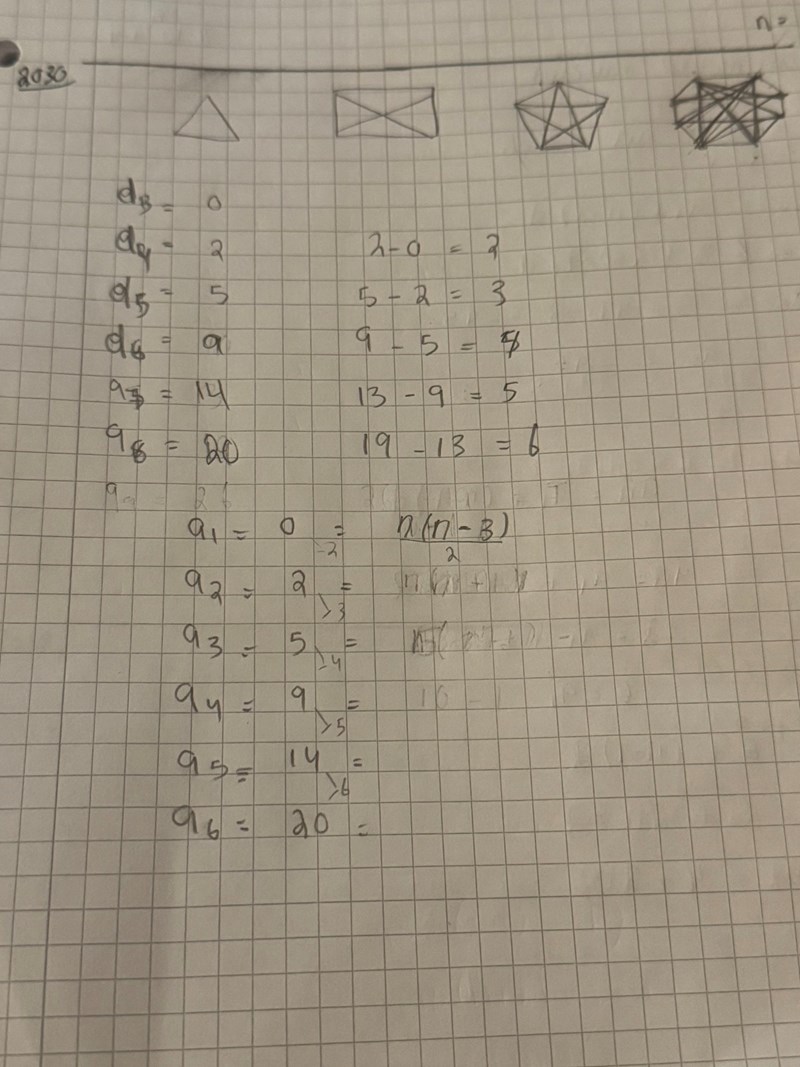 n=
2030
d3 = 0
d4 = 2 2-0 = 2
d5 = 5 5-2 = 3
d6 = 9 9-5 = 4
a7 = 14 13-9 = 5
a8 = 20 19-13 = 6
a1 = 0 = n(n-3)/2
-2
a2 = 2 =
>3
a3 = 5 =
>4
a4 = 9 =
>5
a5 = 14 =
>6
a6 = 20 =